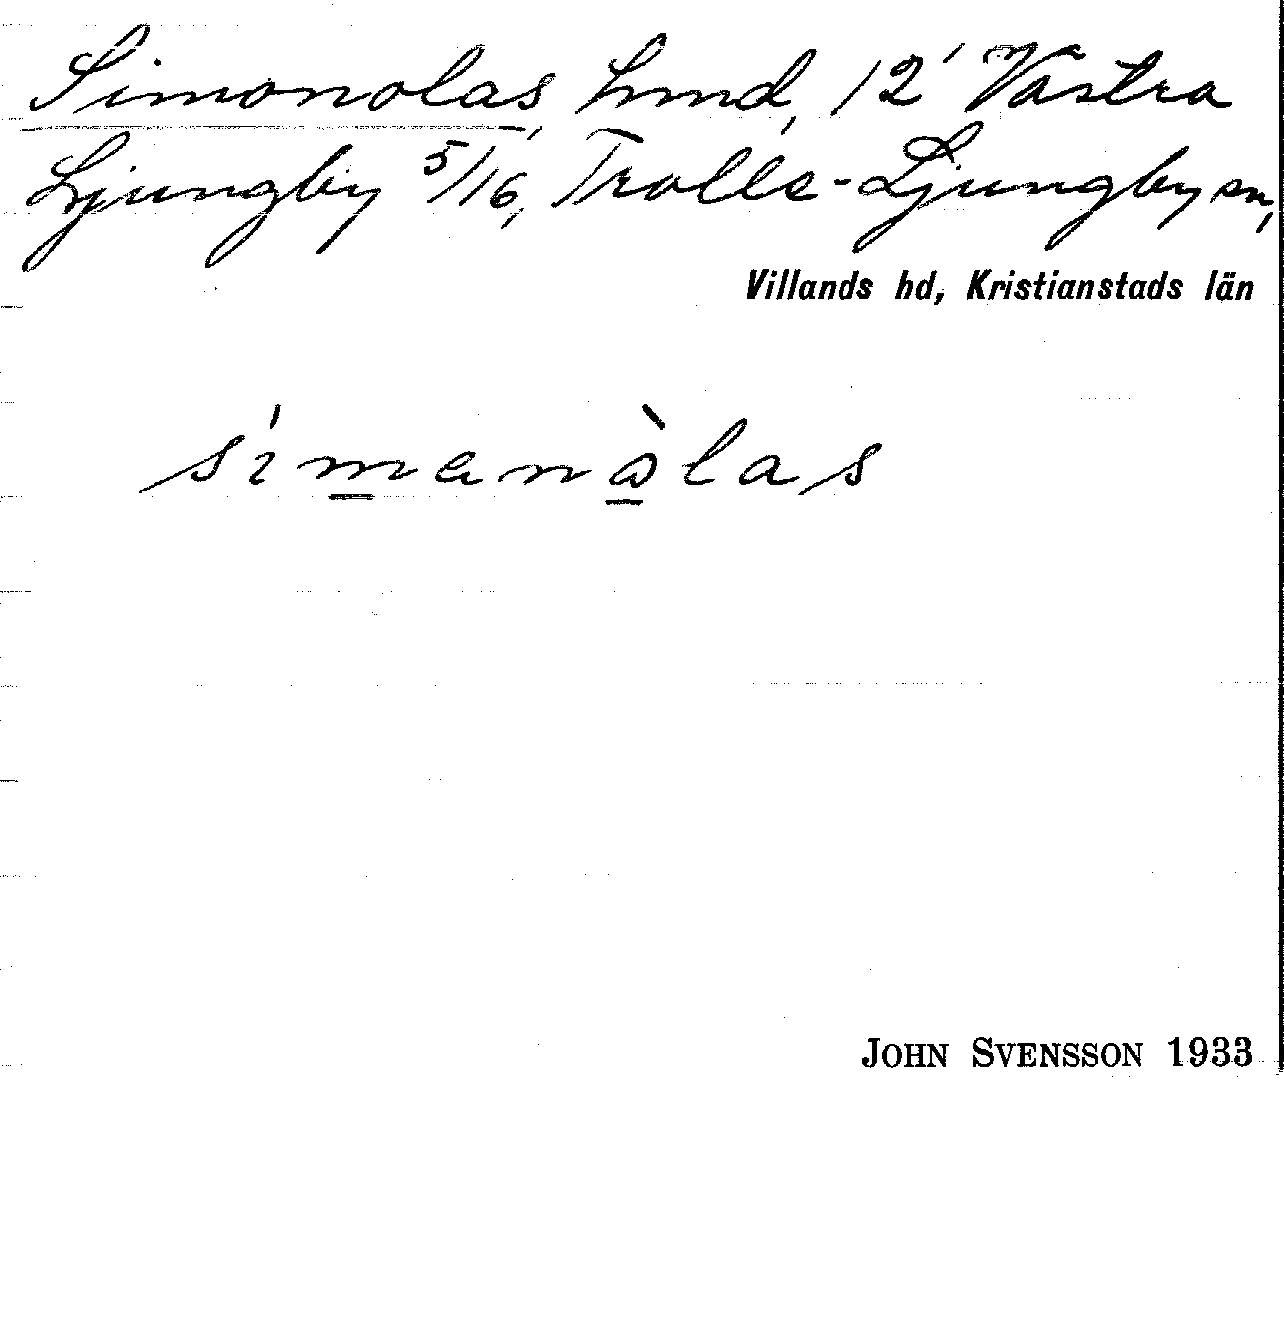 Simonolas, hmd, 12' Västra
Ljungby 5/16, Trolle-Ljungby sn,
Villands hd, Kristianstads län
símanòlas
JOHN SVENSSON 1933